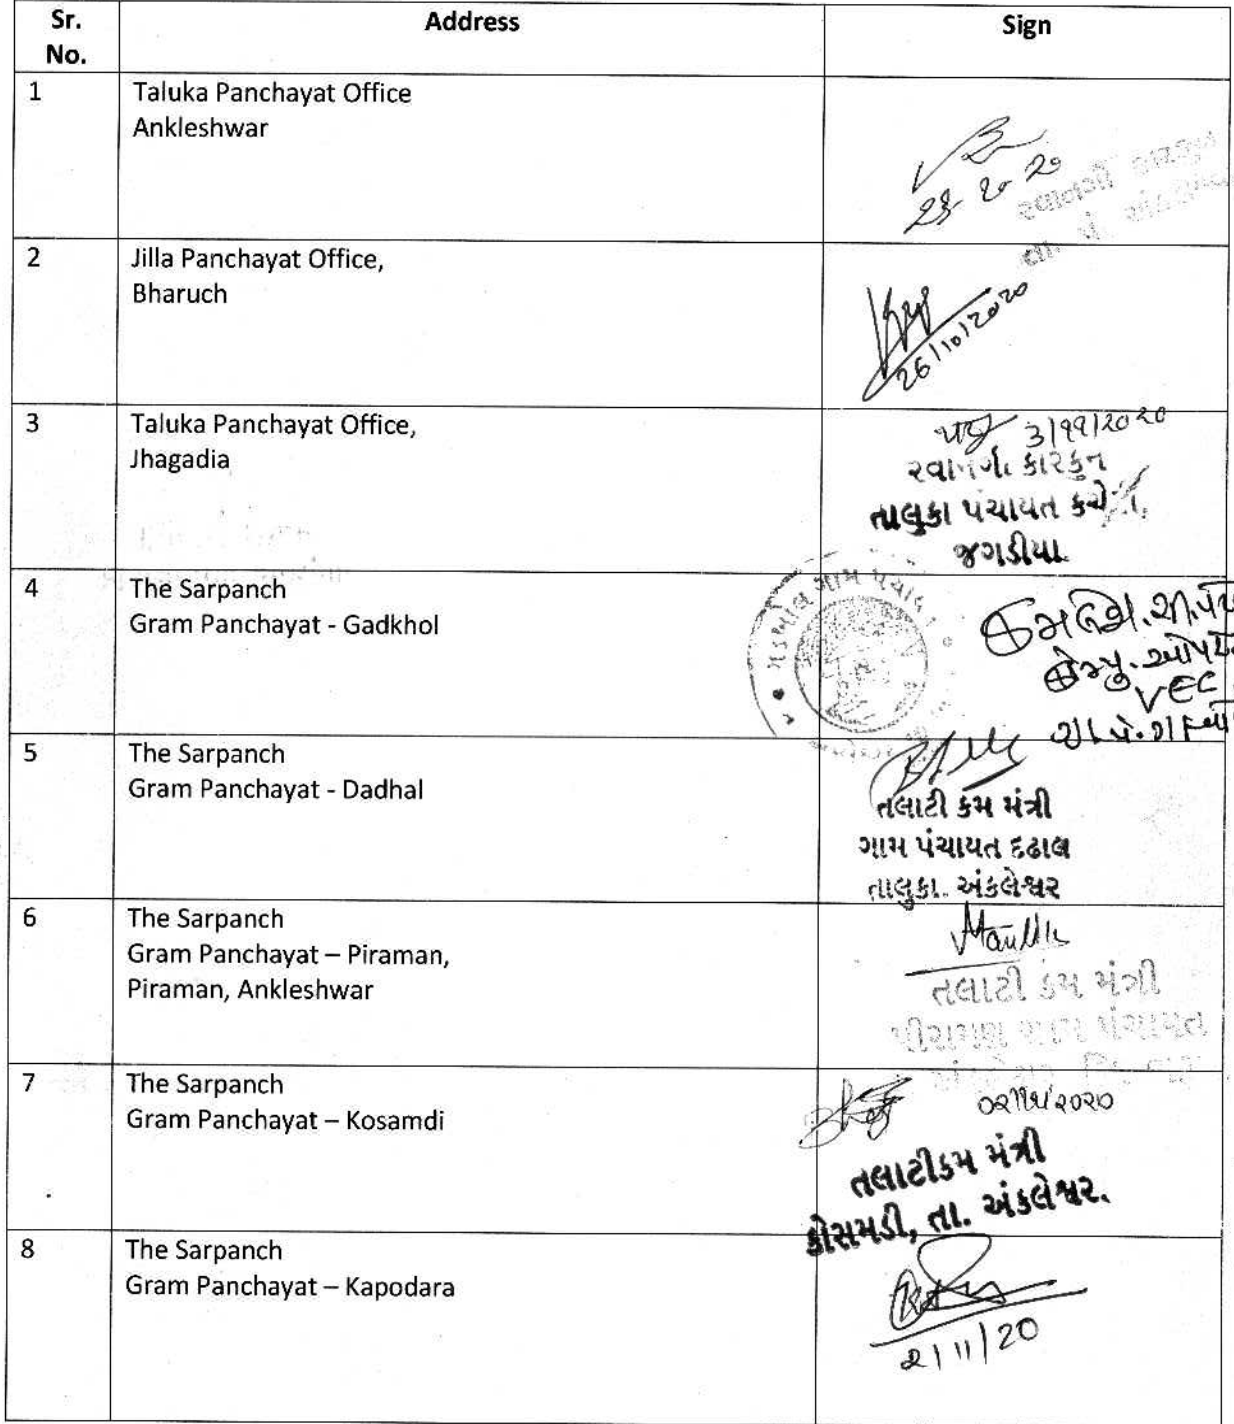 Sr. No.
Address
Sign
1
Taluka Panchayat Office
Ankleshwar
2
Jilla Panchayat Office,
Bharuch
26/10/2020
3
Taluka Panchayat Office,
Jhagadia
3/૧૧/2020
કારકુન
તાલુકા પંચાયત
જગડીયા
4
The Sarpanch
Gram Panchayat - Gadkhol
ગામ
VEC
5
The Sarpanch
Gram Panchayat - Dadhal
તલાટી કમ મંત્રી
ગામ પંચાયત દઢાલ
તાલુકા. અંકલેશ્વર
6
The Sarpanch
Gram Panchayat – Piraman,
Piraman, Ankleshwar
તલાટી કમ મંત્રી
7
The Sarpanch
Gram Panchayat – Kosamdi
તલાટીકમ મંત્રી
કોસમડી, તા. અંકલેશ્વર.
8
The Sarpanch
Gram Panchayat – Kapodara
2/11/20